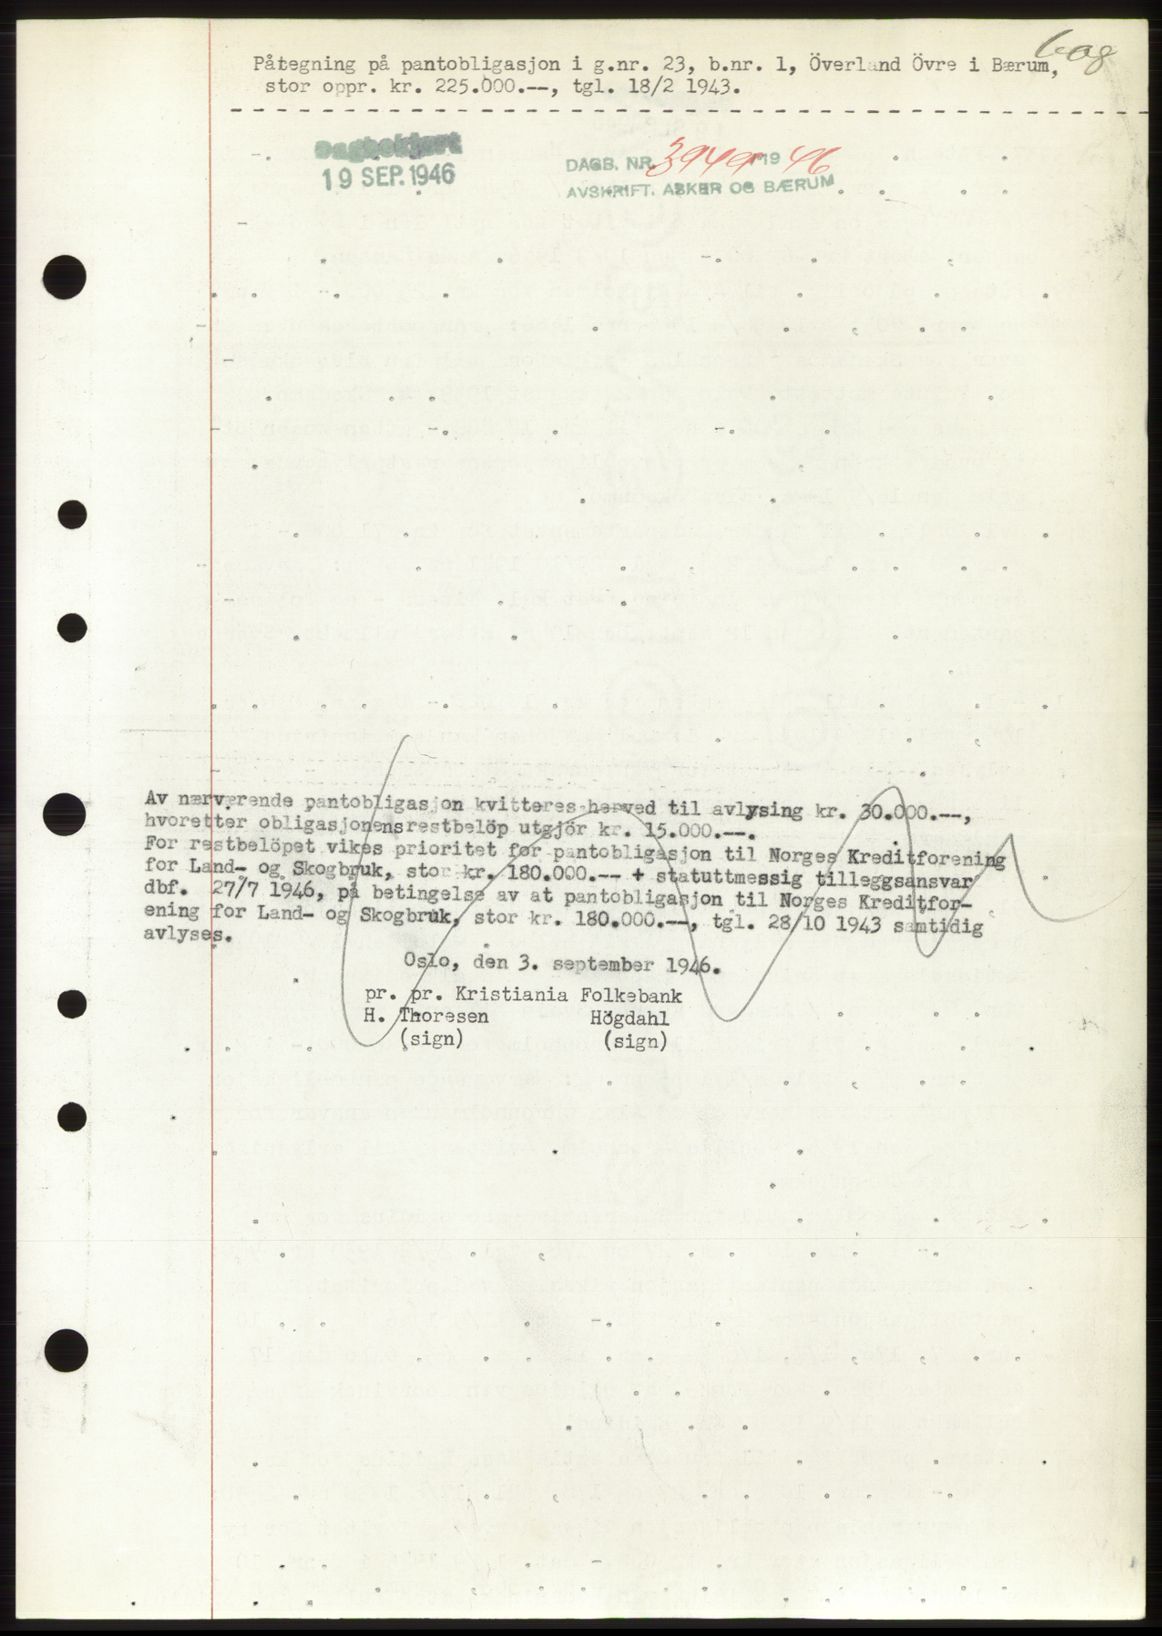 608
Påtegning på pantobligasjon i g.nr. 23, b.nr. 1, Överland Övre i Bærum,
stor oppr. kr. 225.000.--, tgl. 18/2 1943.
Dagbokført
19 SEP. 1946
DAGB. NR. 3949 19 46
AVSKRIFT. ASKER OG BÆRUM
Av nærværende pantobligasjon kvitteres herved til avlysing kr. 30.000.--,
hvoretter obligasjonensrestbelöp utgjör kr. 15.000.--.
For restbelöpet vikes prioritet før pantobligasjon til Norges Kreditforening
for Land- og Skogbruk, stor kr. 180.000.-- + statuttmessig tilleggsansvar
dbf. 27/7 1946, på betingelse av at pantobligasjon til Norges Kreditfor-
ening for Land- og Skogbruk, stor kr. 180.000.--, tgl. 28/10 1943 samtidig
avlyses.
Oslo, den 3. september 1946.
pr. pr. Kristiania Folkebank
H. Thoresen Högdahl
(sign) (sign)